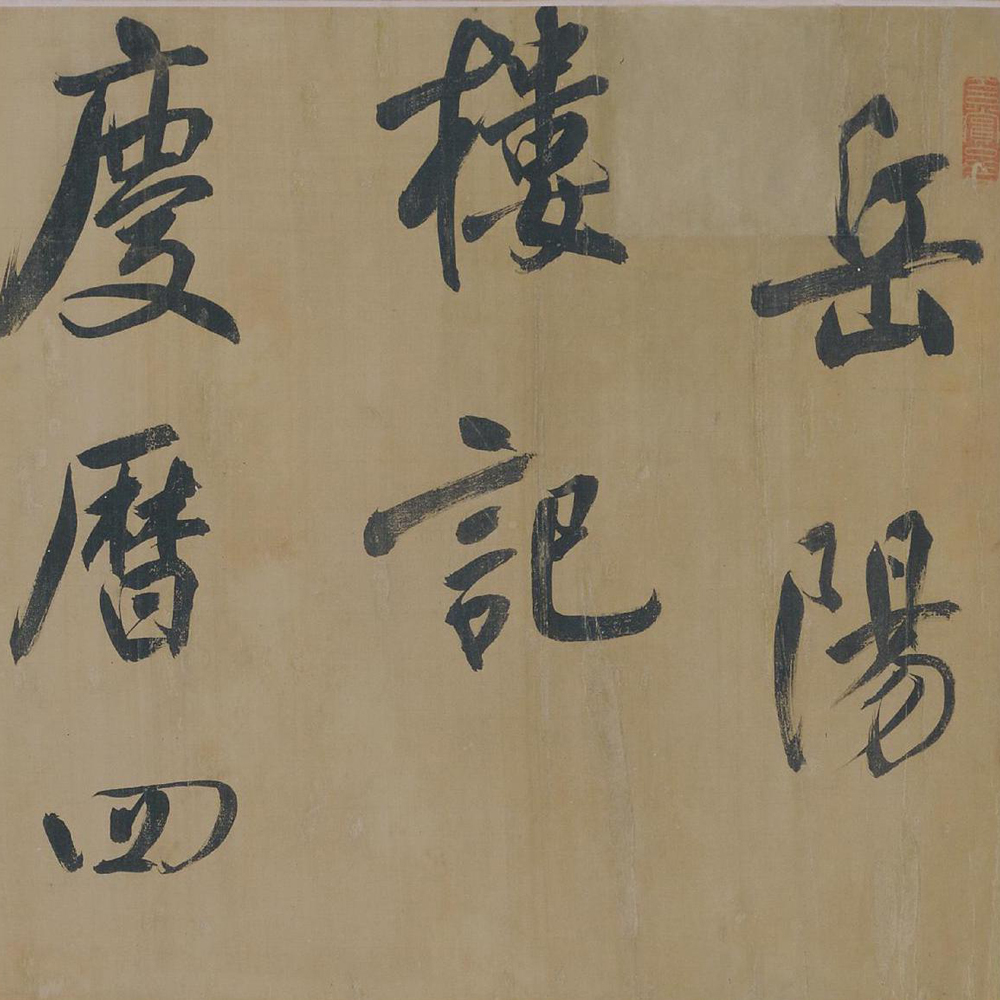 岳陽
樓記
慶曆四